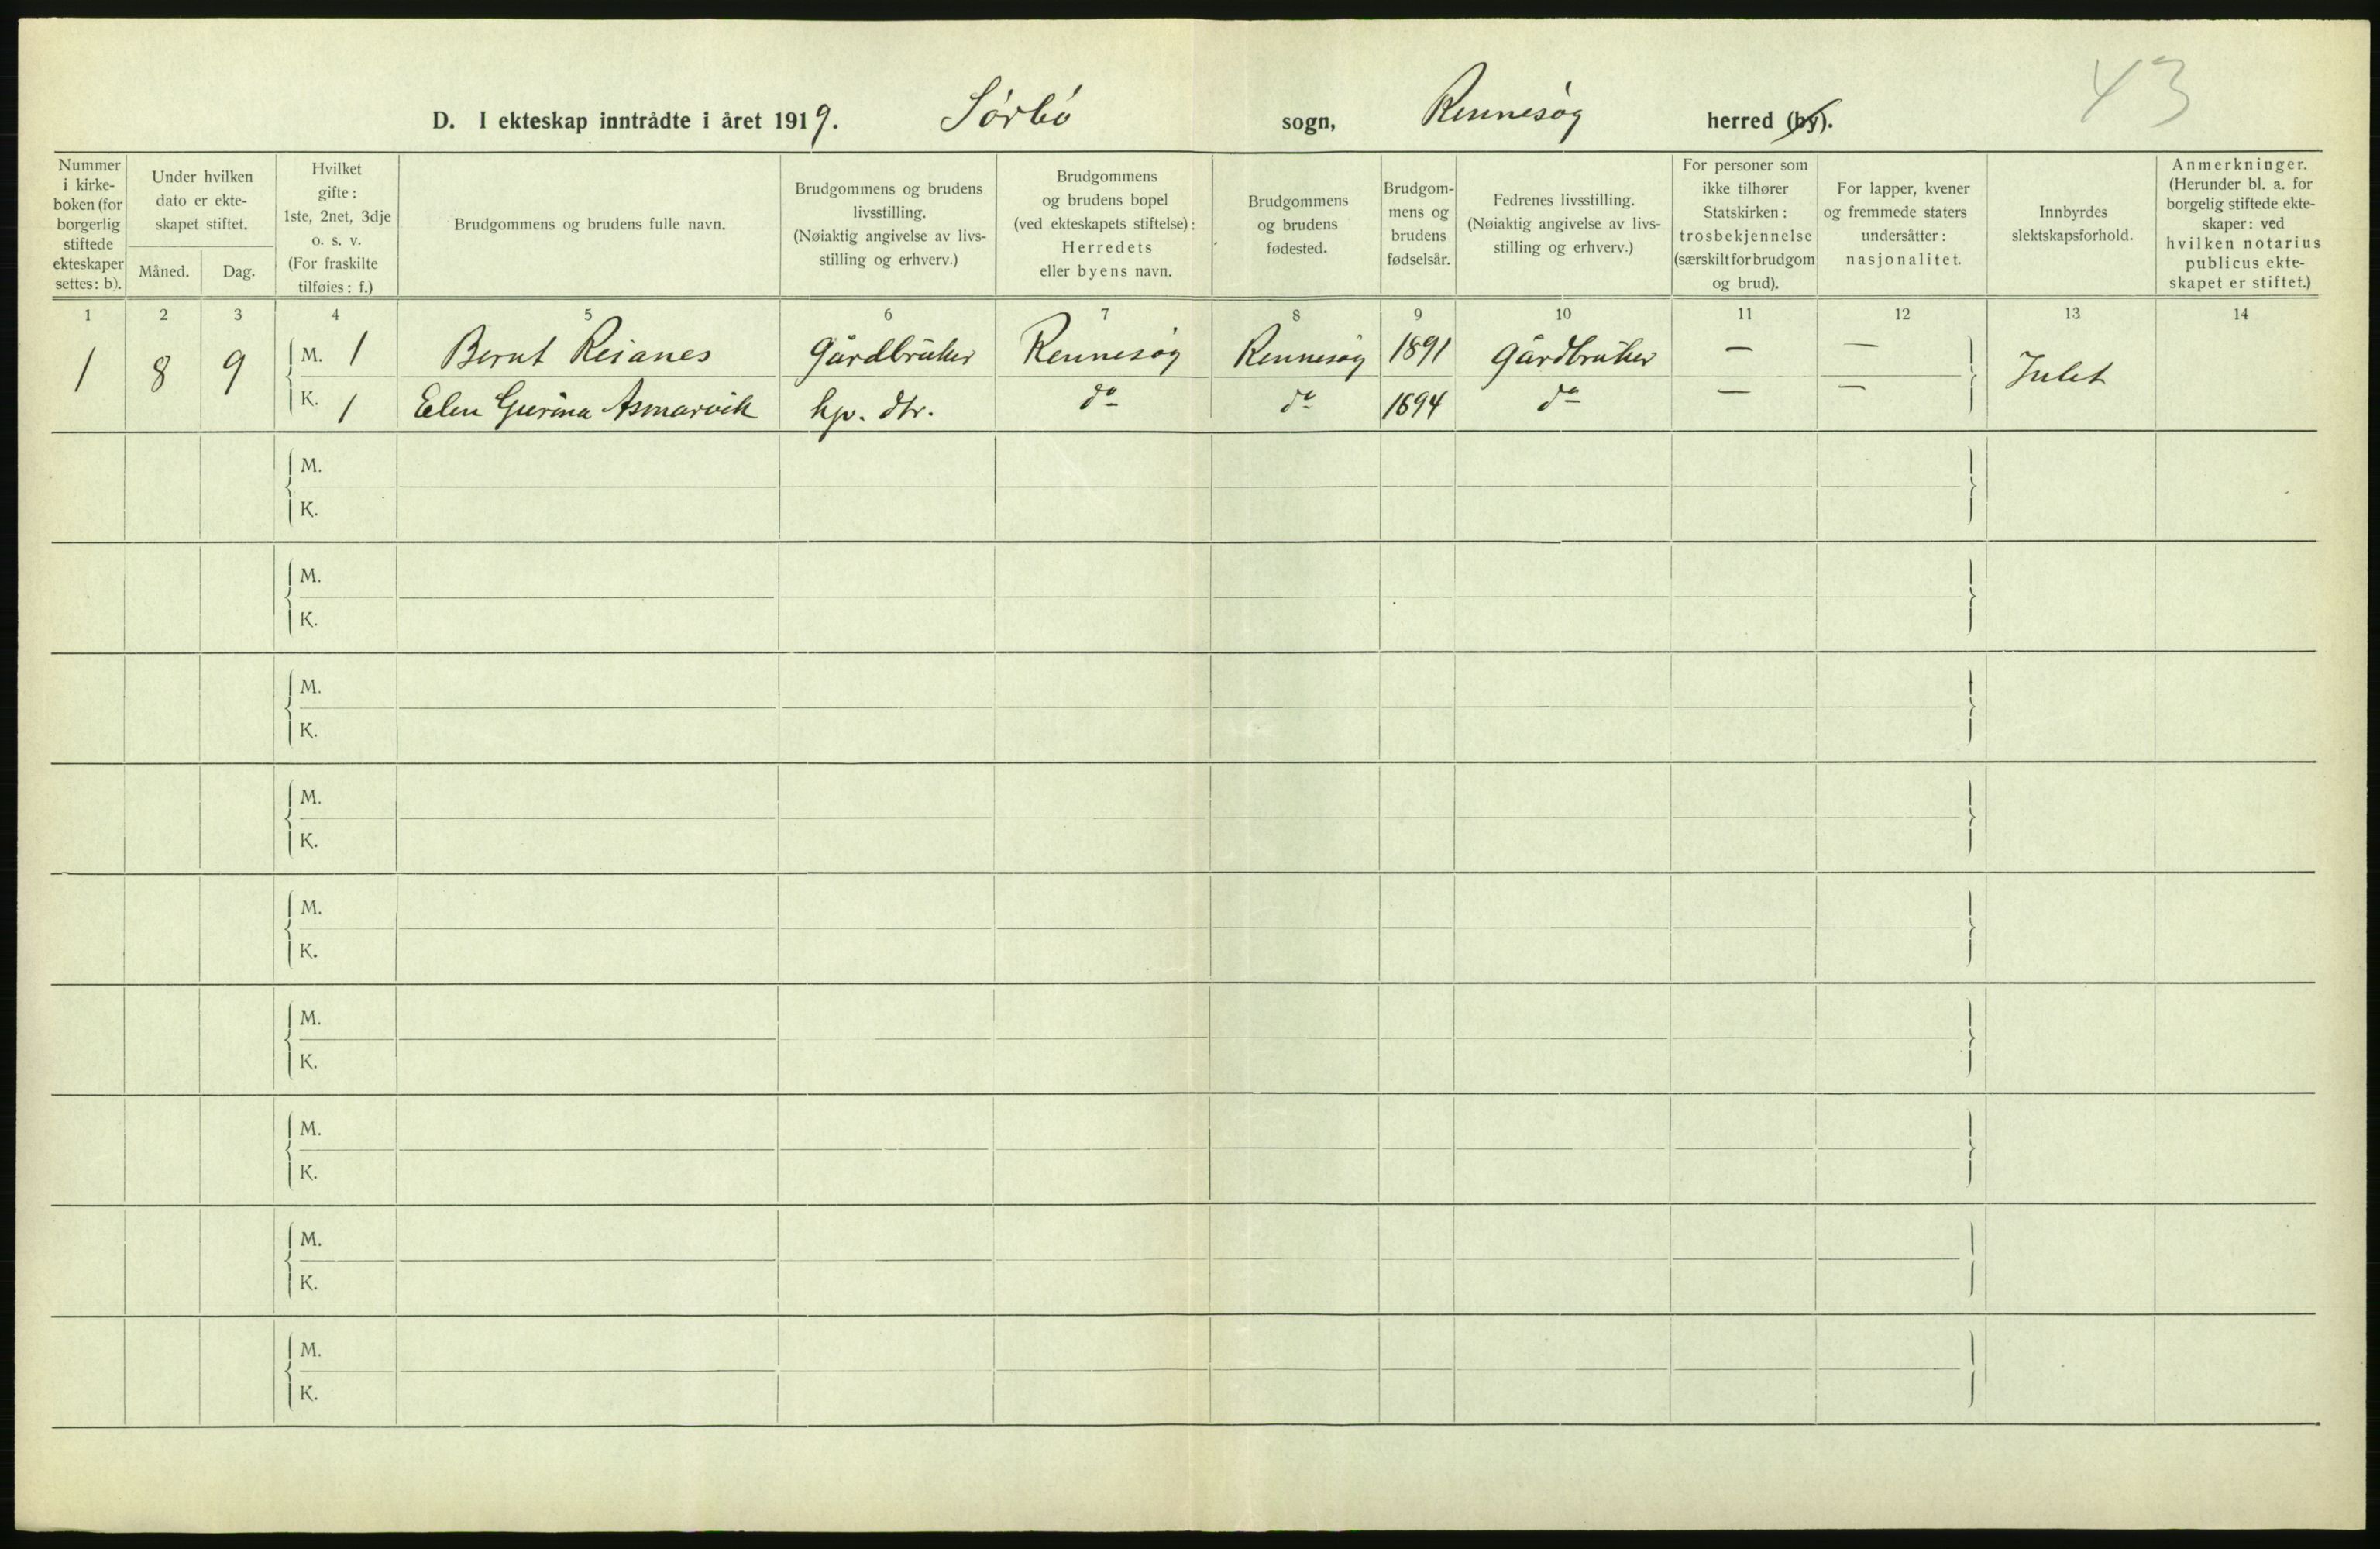 43
D. I ekteskap inntrådte i året 1919. Sørbø sogn, Rennesøy herred (by).
Nummer i kirke-boken (for borgerlig stiftede ekteskaper settes: b).
Under hvilken dato er ekte-skapet stiftet.
Måned. Dag.
Hvilket gifte: 1ste, 2net, 3dje o. s. v. (For fraskilte tilføies: f.)
Brudgommens og brudens fulle navn.
Brudgommens og brudens livsstilling. (Nøiaktig angivelse av livs-stilling og erhverv.)
Brudgommens og brudens bopel (ved ekteskapets stiftelse): Herredets eller byens navn.
Brudgommens og brudens fødested.
Brudgom-mens og brudens fødselsår.
Fedrenes livsstilling. (Nøiaktig angivelse av livs-stilling og erhverv.)
For personer som ikke tilhører Statskirken: trosbekjennelse (særskilt for brudgom og brud).
For lapper, kvener og fremmede staters undersåtter: nasjonalitet.
Innbyrdes slektskapsforhold.
Anmerkninger. (Herunder bl. a. for borgelig stiftede ekte-skaper: ved hvilken notarius publicus ekte-skapet er stiftet.)
1 2 3 4 5 6 7 8 9 10 11 12 13 14
1 8 9 M. 1 Bernt Reianes Gårdbruker Rennesøy Rennesøy 1891 Gårdbruker — — Intet
K. 1 Elen Gurina Asmarvik hp. dtr. do do 1894 do — —
M.
K.
M.
K.
M.
K.
M.
K.
M.
K.
M.
K.
M.
K.
M.
K.
M.
K.